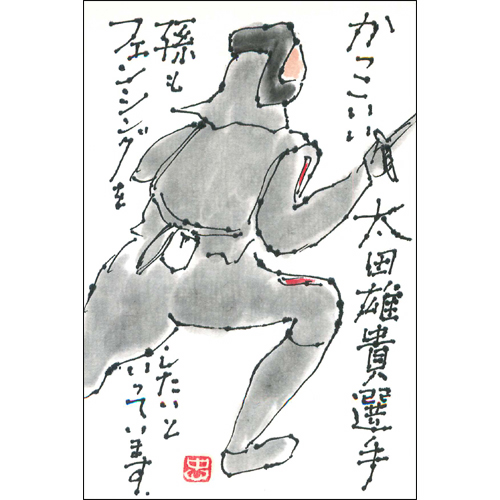 かっこいい
太田雄貴選手
孫も
フェンシングを
したいと
いっています。
忠